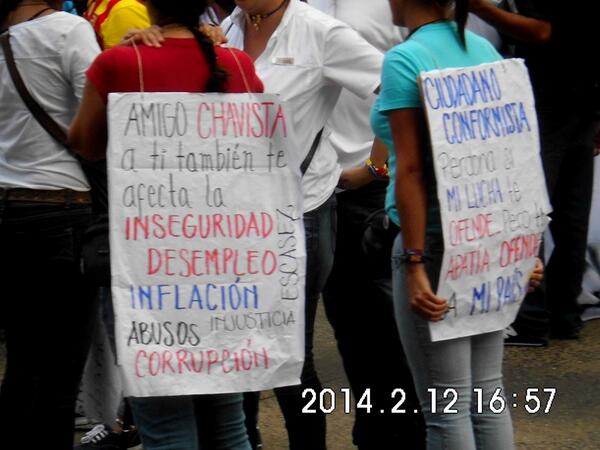 AMIGO CHAVISTA
a ti también te
afecta la
INSEGURIDAD
DESEMPLEO
INFLACIÓN
ESCASEZ,
ABUSOS INJUSTICIA
CORRUPCIÓN
CIUDADANO
CONFORMISTA
Perdona si
MI LUCHA te
OFENDE. Pero tu
APATIA OFENDE
A MI PAÍS
2014.2.12 16:57